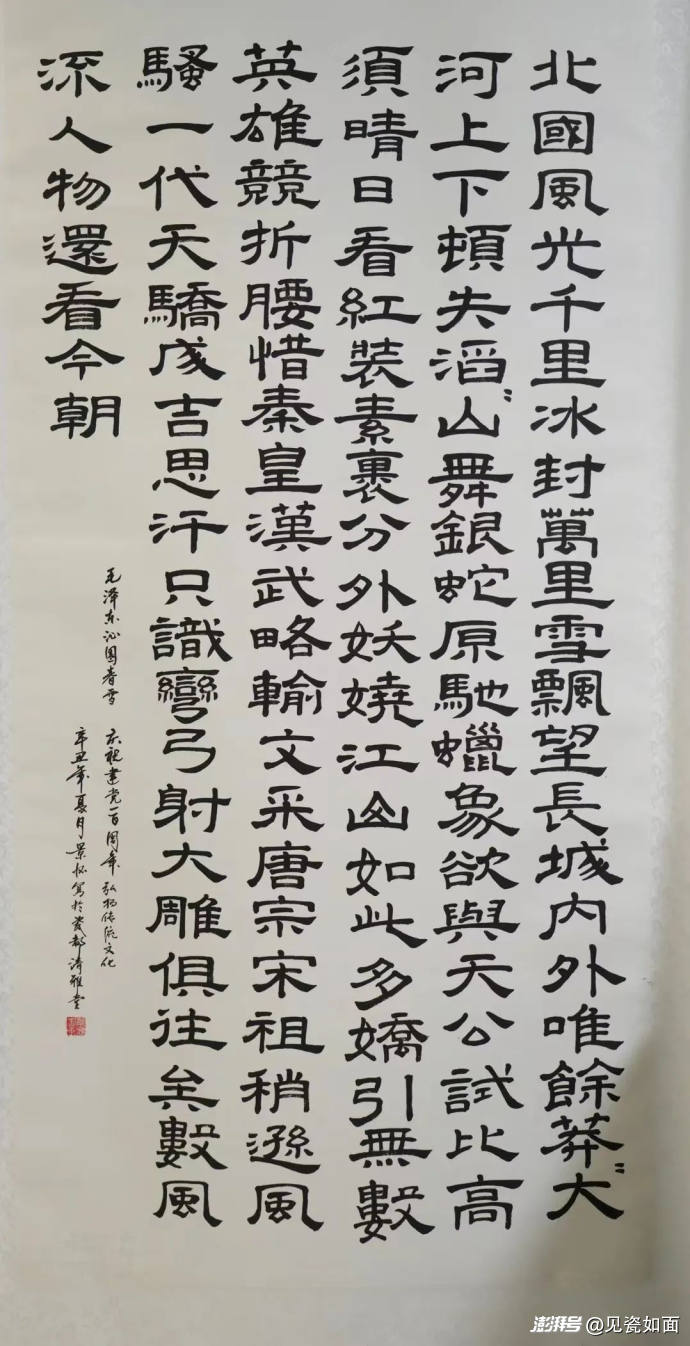 北國風光千里冰封萬里雪飄望長城內外唯餘莽〻大
河上下頓失滔〻山舞銀蛇原馳蠟象欲與天公試比高
須晴日看紅裝素裹分外妖嬈江山如此多嬌引無數
英雄競折腰惜秦皇漢武略輸文采唐宗宋祖稍遜風
騷一代天驕成吉思汗只識彎弓射大雕俱往矣數風
流人物還看今朝
毛泽东沁园春雪 庆祝建党一百周年 弘扬传统文化
辛丑年夏月景怀写於瓷都雅堂
澎湃号@见瓷如面